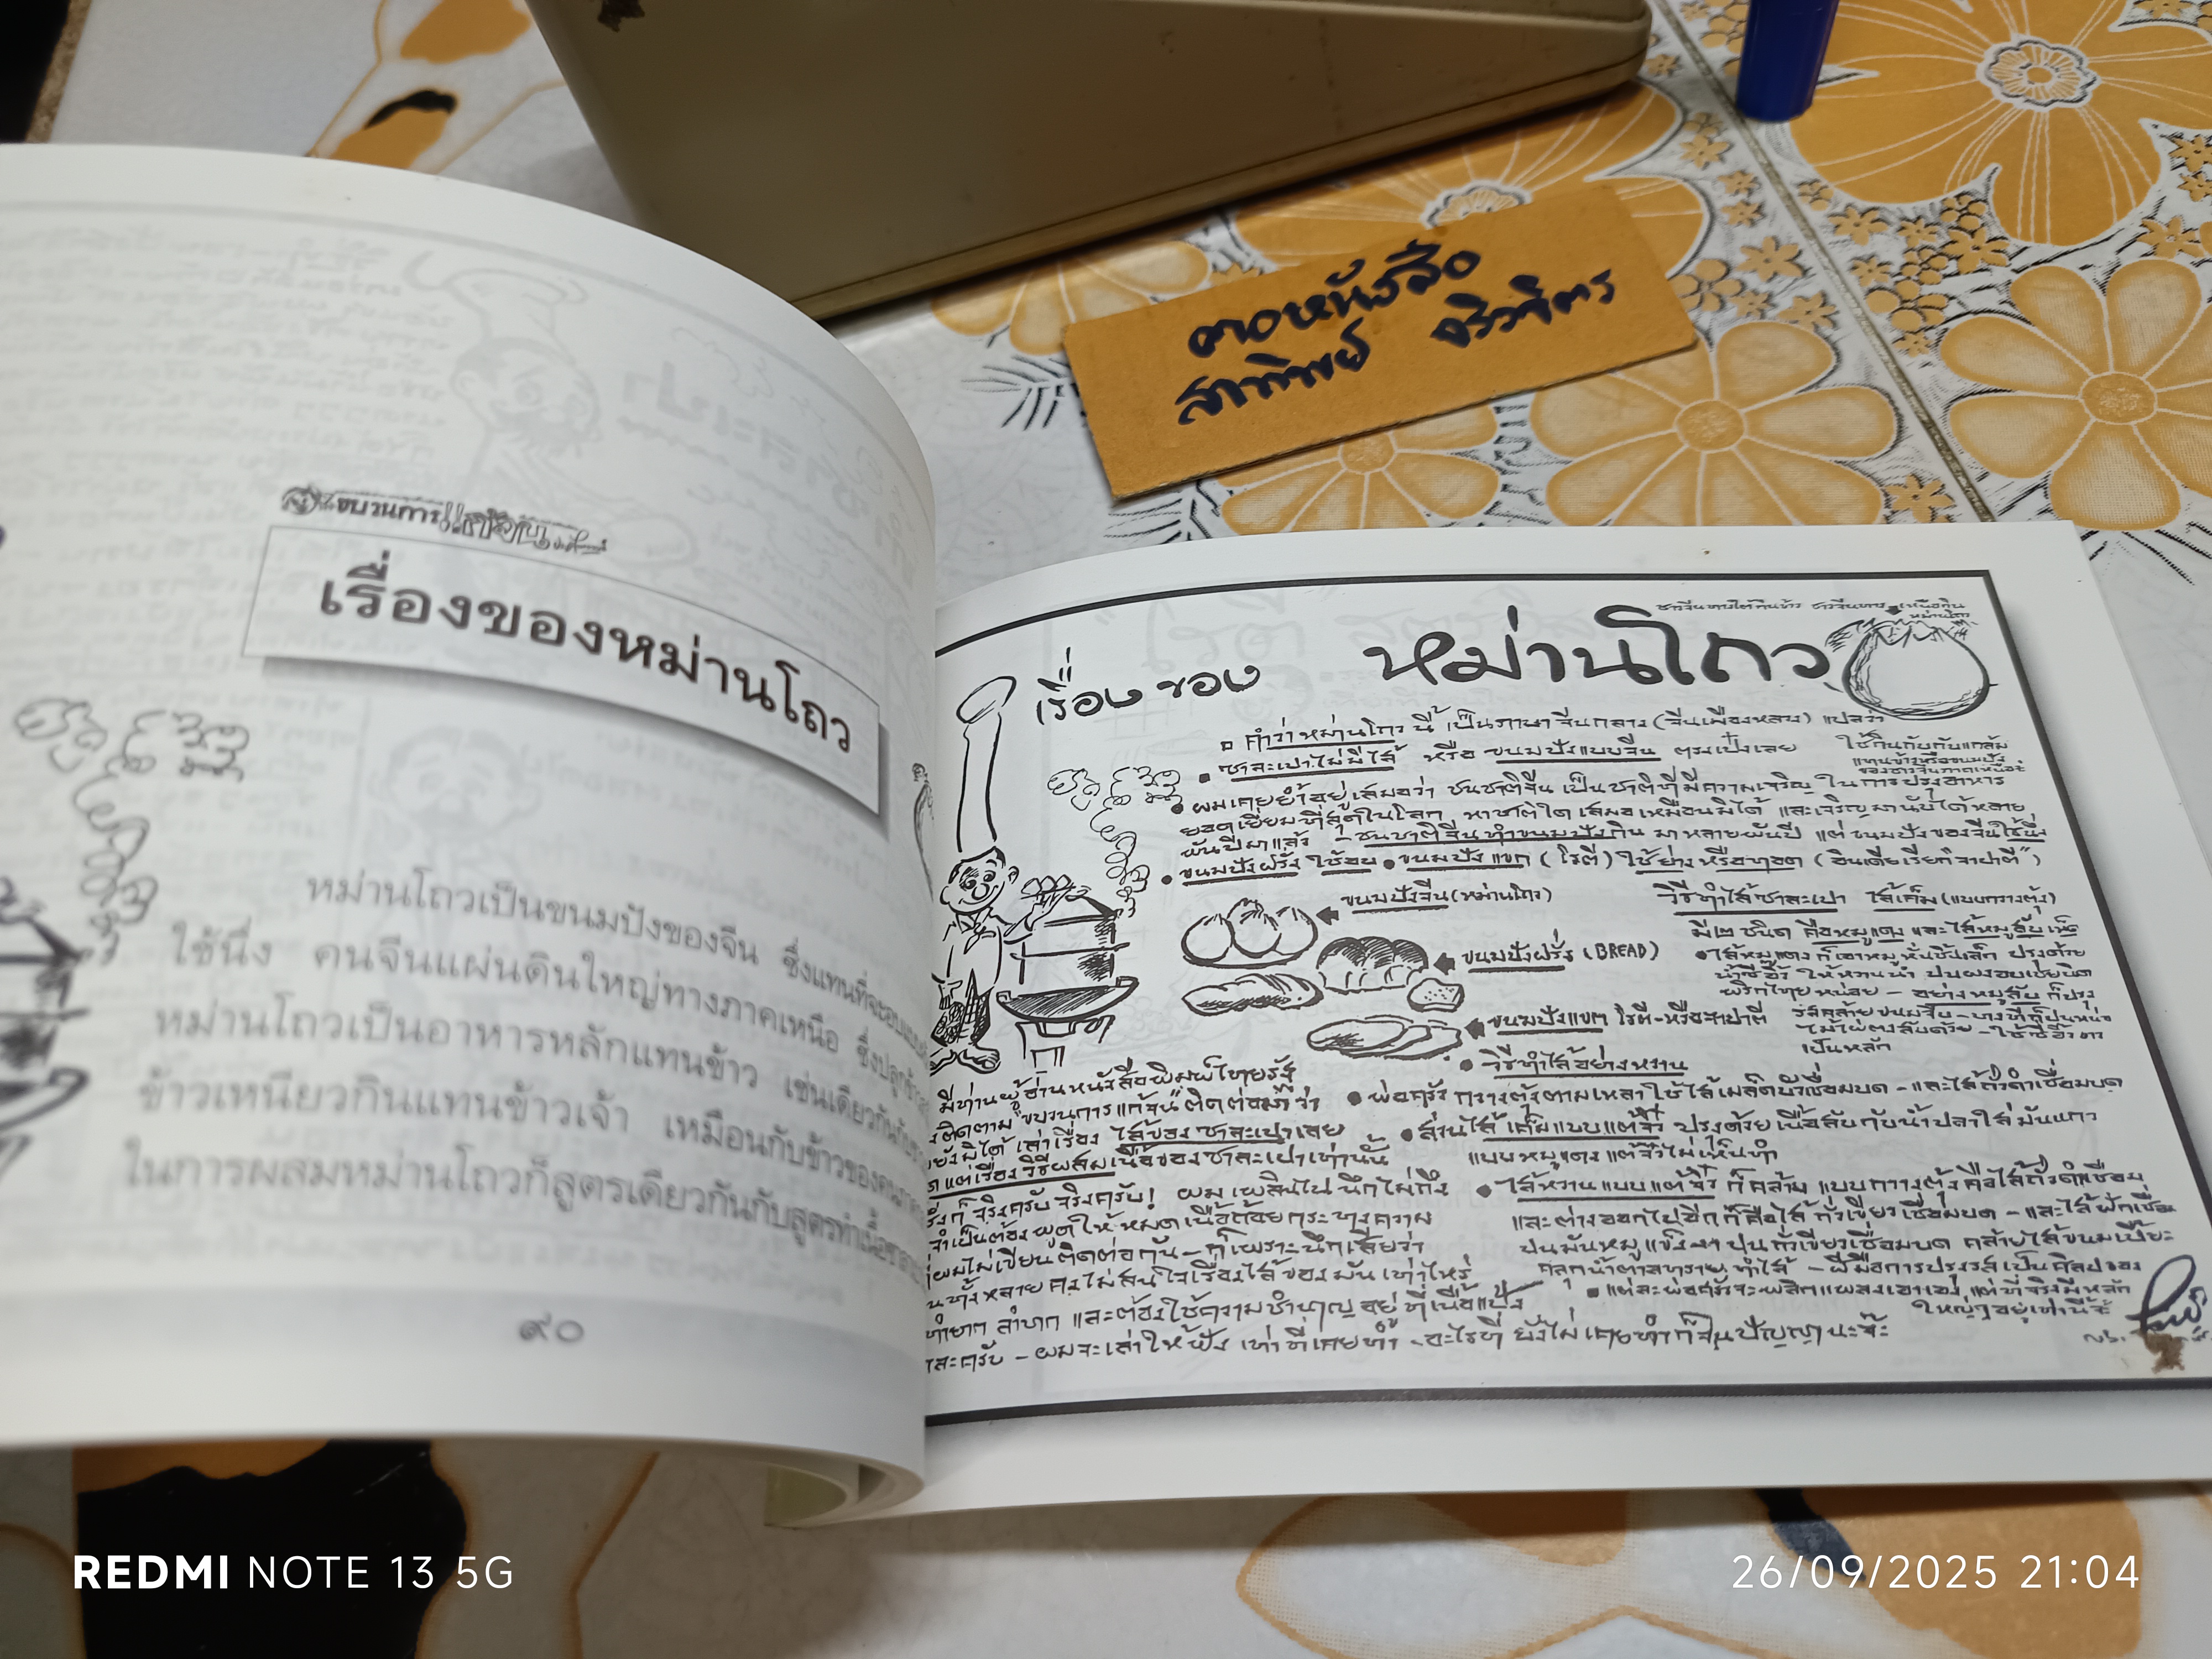 คอหนังสือ
สาทิพย์ จริวจิตร
ขบวนการแก้จน
เรื่องของหม่านโถว
หม่านโถวเป็นขนมปังของจีน ซึ่งแทนที่จะอบแบบฝรั่ง
ใช้นึ่ง คนจีนแผ่นดินใหญ่ทางภาคเหนือ ซึ่งปลูกข้าว
หม่านโถวเป็นอาหารหลักแทนข้าว เช่นเดียวกันกับ
ข้าวเหนียวกินแทนข้าวเจ้า เหมือนกับข้าวของคน
ในการผสมหม่านโถวก็สูตรเดียวกันกับสูตรทำเนื้อซาลาเปา
๙๐
ชาวจีนทางใต้กินข้าว ชาวจีนทางเหนือกิน
หม่านโถว
เรื่องของ หม่านโถว
คำว่าหม่านโถวนี้ เป็นภาษาจีนกลาง (จีนเมืองหลวง) แปลว่า
ซาละเปาไม่มีไส้ หรือ ขนมปังแบบจีน ตรงเป๋งเลย
ใช้กินกับกับแกล้ม
แทนข้าวหรือขนมปัง
ของชาวจีนภาคเหนือจ้ะ
ผมเคยย้ำอยู่เสมอว่า ชนชาติจีน เป็นชาติที่มีความเจริญ ในการปรุงอาหาร
ยอดเยี่ยมที่สุดในโลก หาชาติใด เสมอเหมือนมิได้ และเจริญมานับได้หลาย
พันปีมาแล้ว - ชนชาติจีนทำขนมปังกิน มาหลายพันปี แต่ขนมปังของจีนใช้นึ่ง
ขนมปังฝรั่ง ใช้อบ • ขนมปังแขก (โรตี) ใช้ย่างหรือทอด (อินเดียเรียก "จาปาตี")
ขนมปังจีน (หม่านโถว)
ขนมปังฝรั่ง (BREAD)
ขนมปังแขก โรตี-หรือจาปาตี
วิธีทำไส้ซาละเปา ไส้เค็ม (แบบกวางตุ้ง)
มี ๒ ชนิด คือหมูแดง และไส้หมูสับเห็ด
• ไส้หมูแดง ก็เอาหมูหั่นชิ้นเล็ก ปรุงด้วย
น้ำซีอิ๊ว ให้หวานนำ ปนผงอบเชยนิด
พริกไทยหน่อย - อย่างหมูสับ ก็ปรุง
รสคล้ายขนมจีบ - บางทีก็ปนหน่อ
ไม้ไผ่ตงสับด้วย - ใช้ซีอิ๊วขาว
เป็นหลัก
• วิธีทำไส้อย่างหวาน
• พ่อครัวกวางตุ้งตามเหลาใช้ไส้เมล็ดบัวเชื่อมบด - และไส้ถั่วดำเชื่อมบด
• ส่วนไส้เค็มแบบแต้จิ๋ว ปรุงด้วยเนื้อสับกับน้ำปลาใส่มันแกว
แบบหมูแดง แต้จิ๋วไม่เห็นทำ
• ไส้หวานแบบแต้จิ๋ว ก็คล้ายแบบกวางตุ้งคือไส้ถั่วดำเชื่อม
และต่างออกไปอีกก็คือไส้ถั่วเขียวเชื่อมบด - และไส้ฟักเชื่อม
ปนมันหมูแข็ง งา ปนถั่วเขียวเชื่อมบด คล้ายไส้ขนมเปี๊ยะ
คลุกน้ำตาลทราย ทำไส้ - ฝีมือการปรุงรสเป็นศิลปของ
• แต่ละพ่อครัวจะพลิกแพลงเอาเอง แต่ที่จริงมีหลัก
ใหญ่ๆ อยู่เท่านี้จ้ะ
มีท่านผู้อ่านหนังสือพิมพ์ไทยรัฐ
ติดตาม "ขบวนการแก้จน" ติดต่อมาว่า
ยังมิได้เล่าเรื่อง ไส้ของซาละเปาเลย
แต่เรื่องวิธีผสมเนื้อของซาละเปาเท่านั้น
ก็จริงครับ จริงครับ! ผมเพลินไป นึกไม่ถึง
จำเป็นต้องพูดให้หมดเนื้อถ้อยกระทงความ
ผมไม่เขียนติดต่อกัน - ก็เพราะนึกเสียว่า
ทั้งหลายคงไม่สนใจเรื่องไส้ของมันเท่าไหร่
ทำยาก ลำบาก และต้องใช้ความชำนาญอยู่ที่เนื้อแป้ง
ละครับ - ผมจะเล่าให้ฟัง เท่าที่เคยทำ - อะไรที่ยังไม่เคยทำก็จนปัญญานะจ๊ะ
REDMI NOTE 13 5G
26/09/2025 21:04